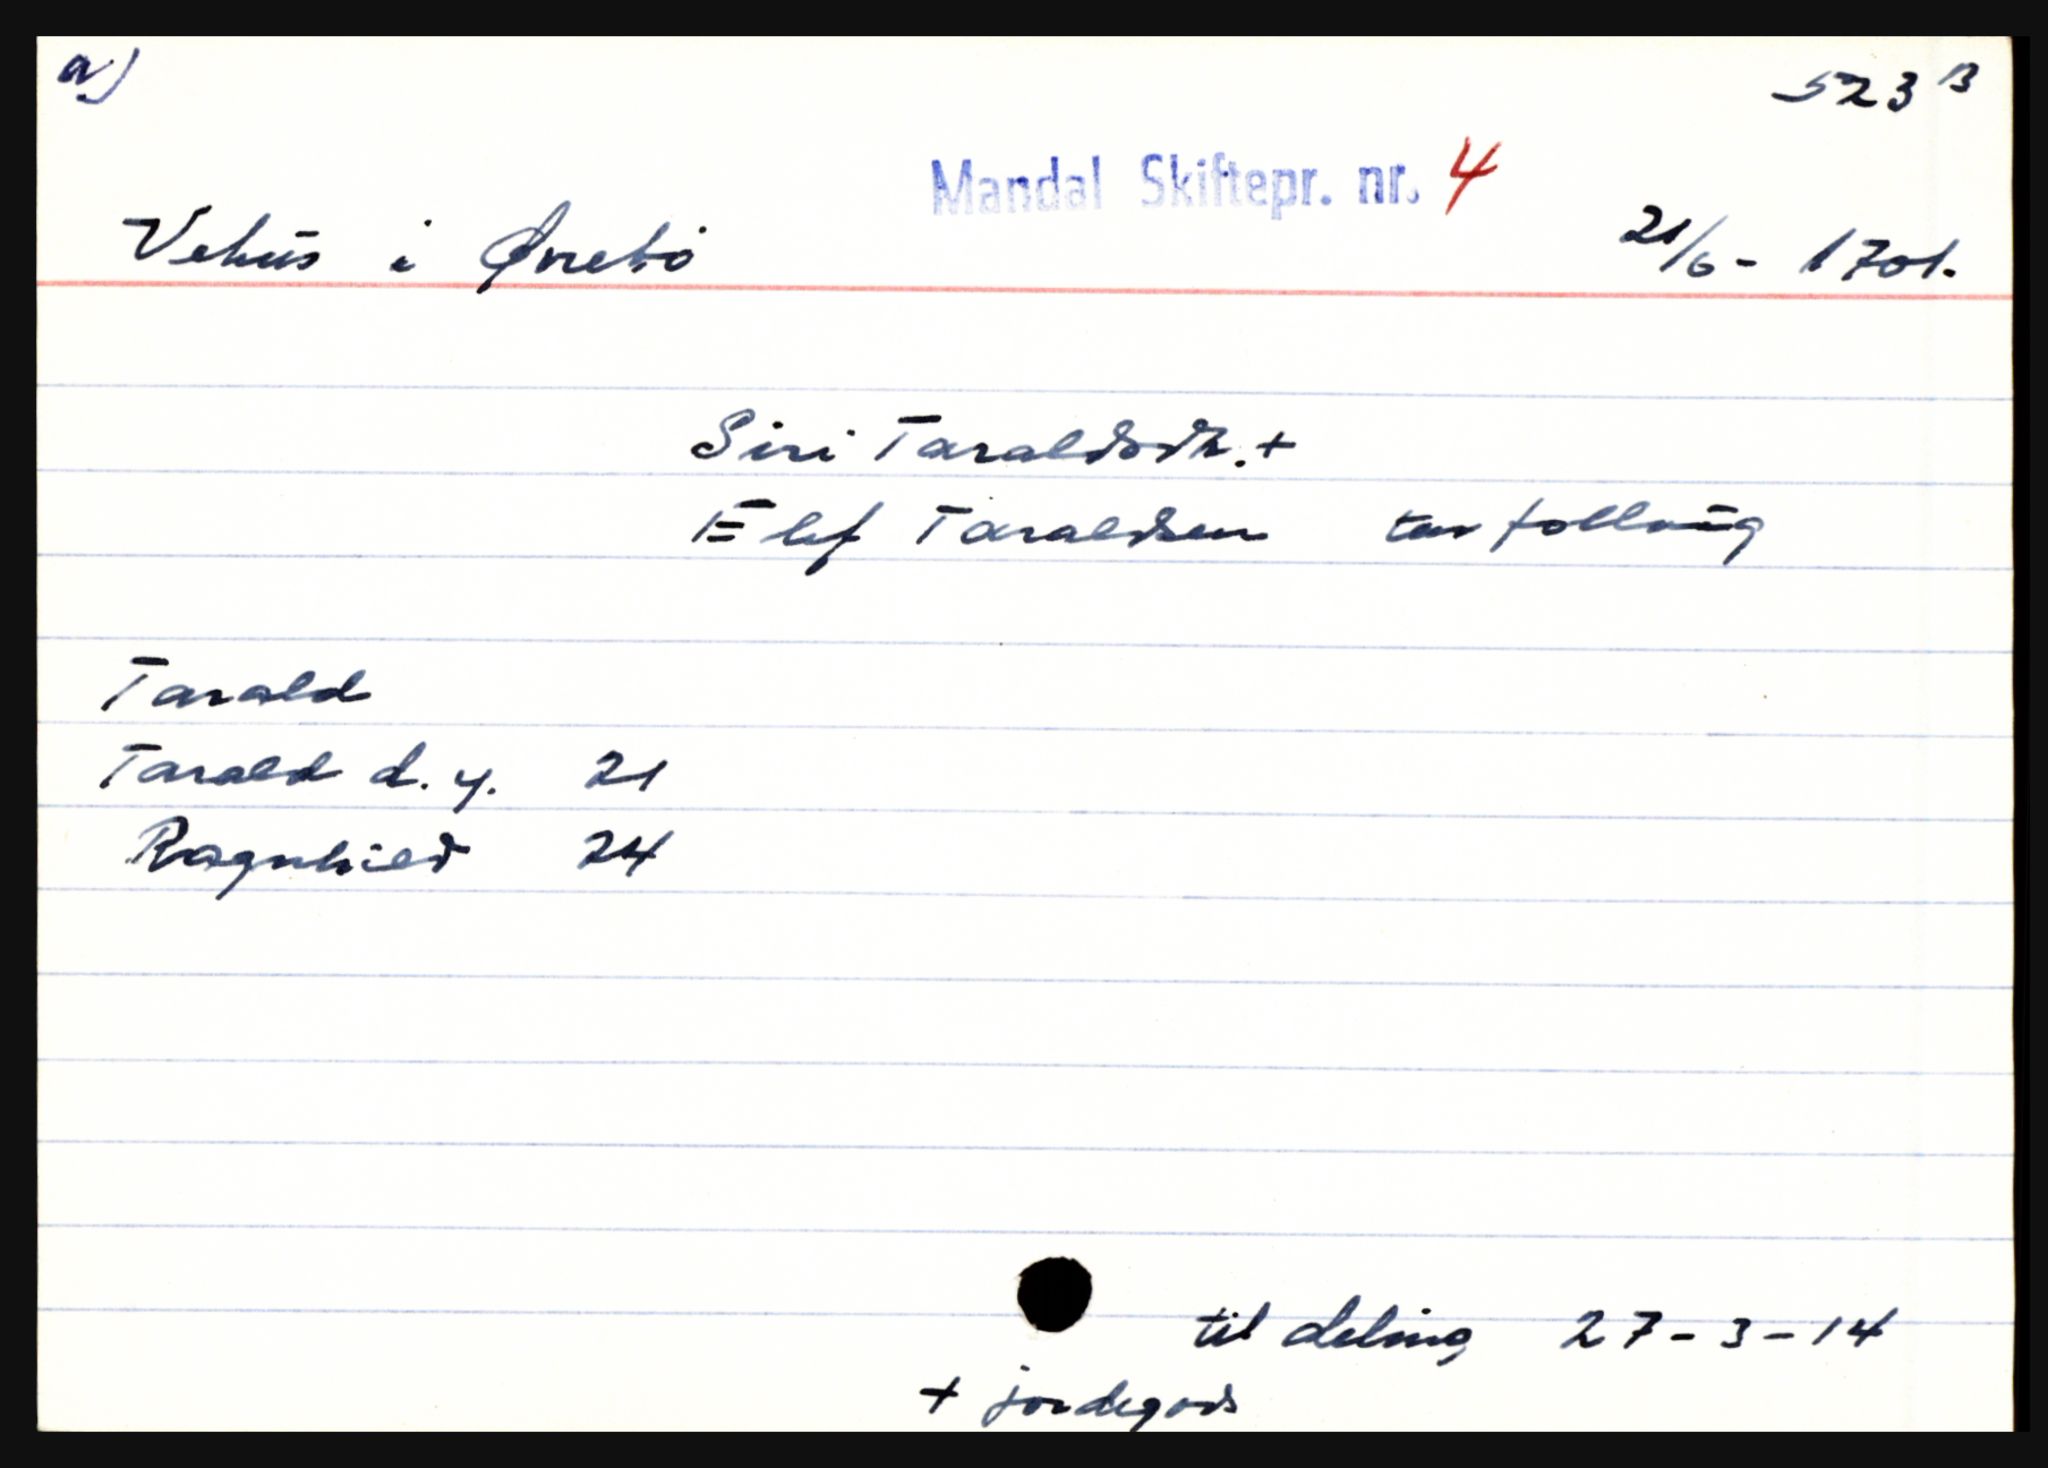 a)
523 B
Mandal Skiftepr. nr. 4
Vehus i Øvrebö 21/6 - 1701.
Siri Taraldsdtr. +
Elef Taraldsen
Tarald
Tarald d.y. 21
Ragnhild 24
til deling 27-3-14
+ jordegods